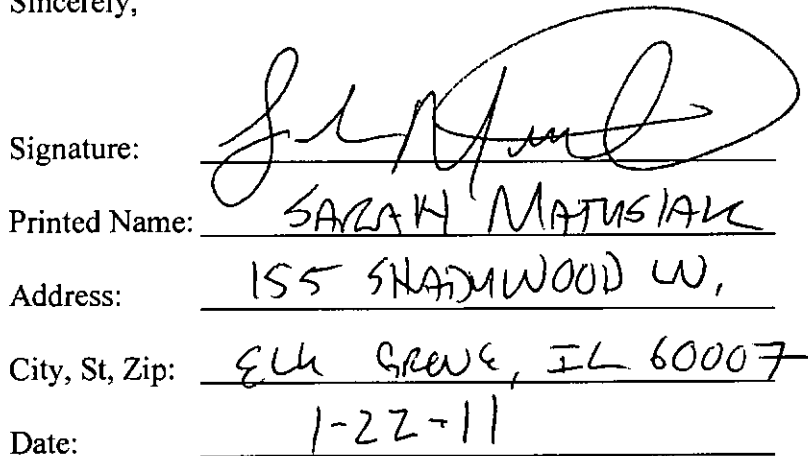 Sincerely,
Signature:
Printed Name: SARAH MATUSIAK
Address: 155 SHADYWOOD LN.
City, St, Zip: ELK GROVE, IL 60007
Date: 1-22-11